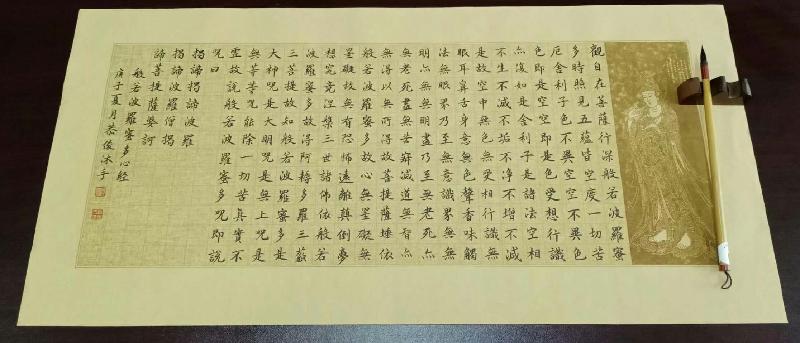 觀自在菩薩行深般若波羅蜜
多時照見五蘊皆空度一切苦
厄舍利子色不異空空不異色
色即是空空即是色受想行識
亦復如是舍利子是諸法空相
不生不滅不垢不淨不增不減
是故空中無色無受想行識無
眼耳鼻舌身意無色聲香味觸
法無眼界乃至無意識界無無
明亦無無明盡乃至無老死亦
無老死盡無苦寂滅道無智亦
無得以無所得故菩提薩埵依
般若波羅蜜多故心無罣礙無
罣礙故無有恐怖遠離顛倒夢
想究竟涅槃三世諸佛依般若
波羅蜜多故得阿耨多羅三藐
三菩提故知般若波羅蜜多是
大神咒是大明咒是無上咒是
無等等咒能除一切苦真實不
虛故說般若波羅蜜多咒即說
咒曰
揭諦揭諦波羅
揭諦波羅僧揭
諦菩提薩婆訶
般若波羅蜜多心經
庚子夏月恭俊沐手